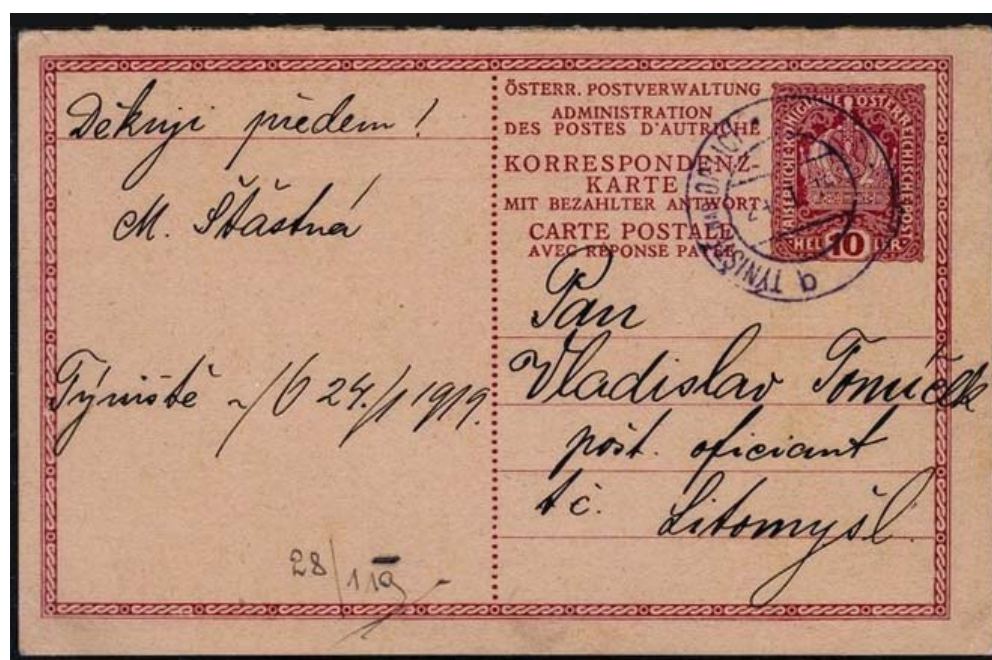 Děkuji předem!
M. Šťastná
Týniště n/O 24./1 1919.
28/1 19
ÖSTERR. POSTVERWALTUNG
ADMINISTRATION
DES POSTES D'AUTRICHE
KORRESPONDENZ-
KARTE
MIT BEZAHLTER ANTWORT
CARTE POSTALE
AVEC RÉPONSE PAYÉE
KAISERLICHE KÖNIGLICHE ÖSTERREICHISCHE POST
HELLER
10
TÝNIŠTĚ
Pan
Vladislav Tomíček
pošt. oficiant
t č.
Litomyšl.